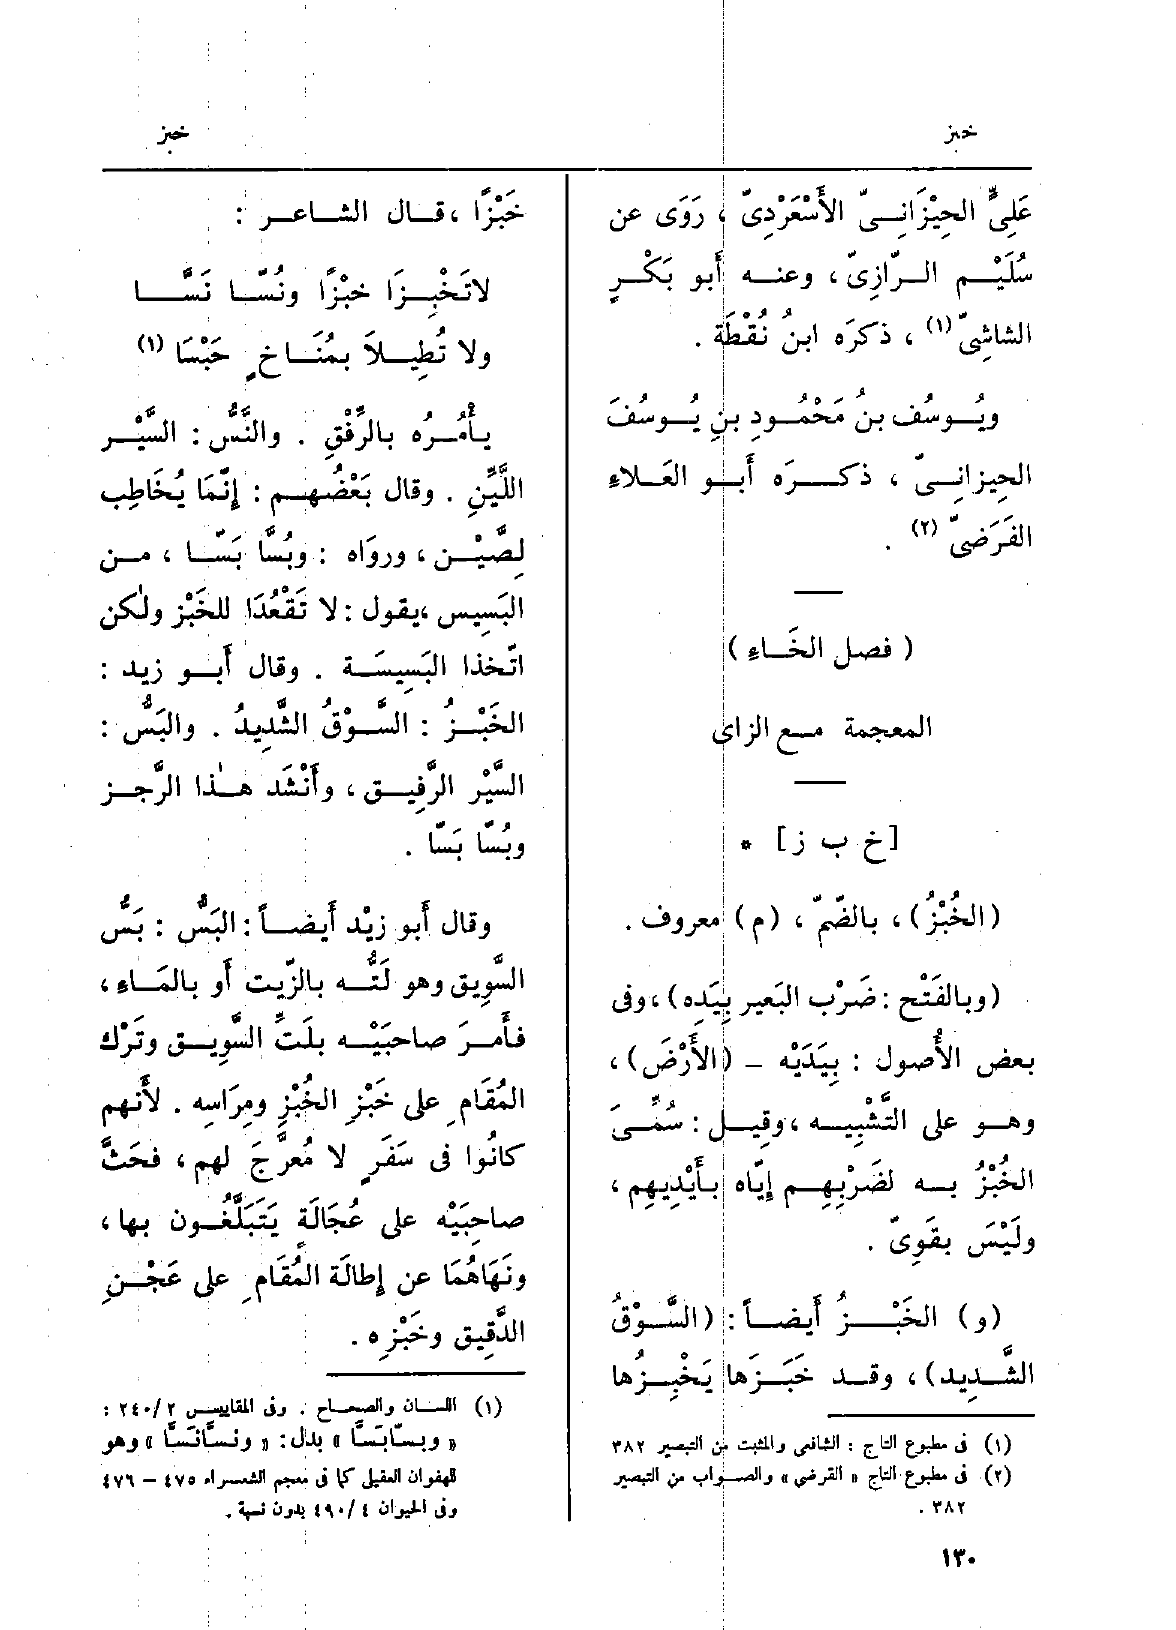 خبز
خبز
عَلِىٍّ الحِيْزَانِىّ الأَسْعَرْدِىّ ، رَوَى عن
سُلَيْم الرّازِىّ ، وعنه أَبو بَكْرٍ
الشاشِىّ (١) ، ذكرَه ابنُ نُقْطَة .
ويُوسُف بنُ مَحْمُودِ بنِ يُوسُفَ
الحِيزانِىّ ، ذكَرَه أَبو العَلاءِ
الفَرَضىّ (٢) .
( فصل الخَاءِ )
المعجمة مع الزاى
[ خ ب ز ] *
( الخُبْزُ ) ، بالضّمّ ، ( م ) معروف .
( وبالفَتْح : ضَرْب البَعيرِ بيَدِه ) ، وفى
بعض الأُصول : بِيَدَيْه – ( الأَرْضَ ) ،
وهو على التَّشْبِيه ، وقِيل : سُمِّىَ
الخُبْزُ به لضَرْبِهِم إِيّاه بأَيْدِيهِم ،
ولَيْسَ بقَوِىّ .
( و ) الخَبْزُ أَيضاً : ( السَّوْقُ
الشَّدِيد ) ، وقد خَبَزَها يَخْبِزُها
(١) فى مطبوع التاج : الشافعى والمثبت من التبصير ٣٨٢
(٢) فى مطبوع التاج « القرضى » والصواب من التبصير
٣٨٢ .
خَبْزًا ، قال الشاعر :
لاتَخْبِزَا خبْزًا ونُسّا نَسَّا
ولا تُطِيلاَ بمُنَاخٍ حَبْسَا (١)
يأْمُرُه بالرِّفْقِ . والنَّسُّ : السَّيْر
اللَّيِّنِ . وقال بَعْضُهم : إِنّمَا يُخَاطِب
لِصَّيْن ، ورواه : وبُسَّا بَسّا ، من
البَسِيس ، يقول : لا تَقْعُدَا للخَبْز ولٰكن
اتّخذا البَسِيسَة . وقال أَبو زيد :
الخَبْزُ : السَّوْقُ الشَّدِيدُ . والبَسُّ :
السَّيْر الرَّفِيق ، وأَنْشَد هٰذا الرَّجز
وبُسّا بَسّا .
وقال أَبو زيْد أَيضاً : البَسُّ : بَسُّ
السَّوِيق وهو لَتُّه بالزّيت أَو بالمَاءِ ،
فأَمرَ صاحبَيْه بلَتِّ السَّوِيق وتَرْك
المُقَامِ على خَبْزِ الخُبْزِ ومِرَاسِه . لأَنهم
كانُوا فى سَفَرٍ لا مُعرَّجَ لهم ، فحَثَّ
صاحِبَيْه على عُجَالَةٍ يَتَبَلَّغُون بها ،
ونَهَاهُمَا عن إِطالَة المُقَامِ على عَجْنِ
الدَّقِيق وخَبْزِه .
(١) اللسان والصحاح . وفى المقاييس ٢ /٢٤٠ :
« وبسّابَسَّا » بدل : « ونسَّانَسَّا » وهو
للهفوان العقيلى كما فى معجم الشعراء ٤٧٥ – ٤٧٦
وفى الحيوان ٤ /٤٩٠ بدون نسبة .
١٣٠